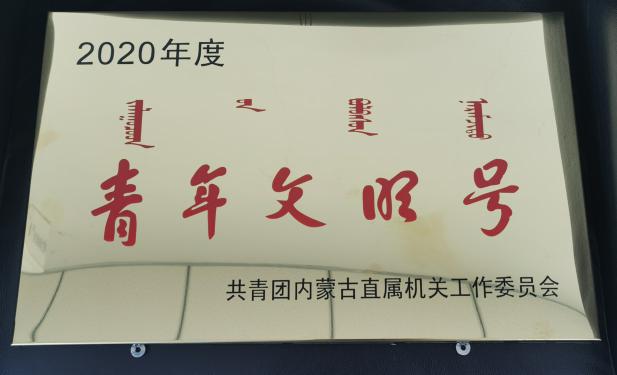 2020年度
青年文明号
共青团内蒙古直属机关工作委员会